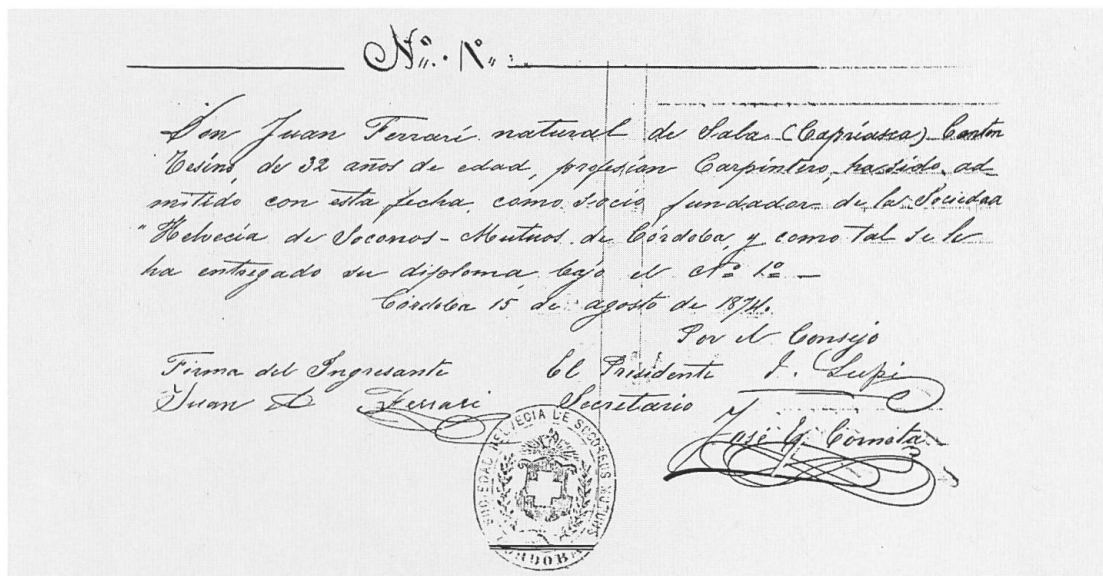 Nº 1º
Don Juan Ferrari natural de Sala (Capriasca) Canton
Tesino, de 32 años de edad, profesian Carpintero, ha sido ad-
mitido con esta fecha como socio fundador de la Sociedad
"Helvecia de Socorros-Mutuos de Córdoba, y como tal se le
ha entregado su diploma bajo el Nº 1º —
Córdoba 15 de agosto de 1874.
Por el Consejo
Firma del Ingresante El Presidente J. Lupi
Juan Ferrari Secretario
José G. Cometta
SOCIEDAD HELVECIA DE SOCORROS MUTUOS
CORDOBA